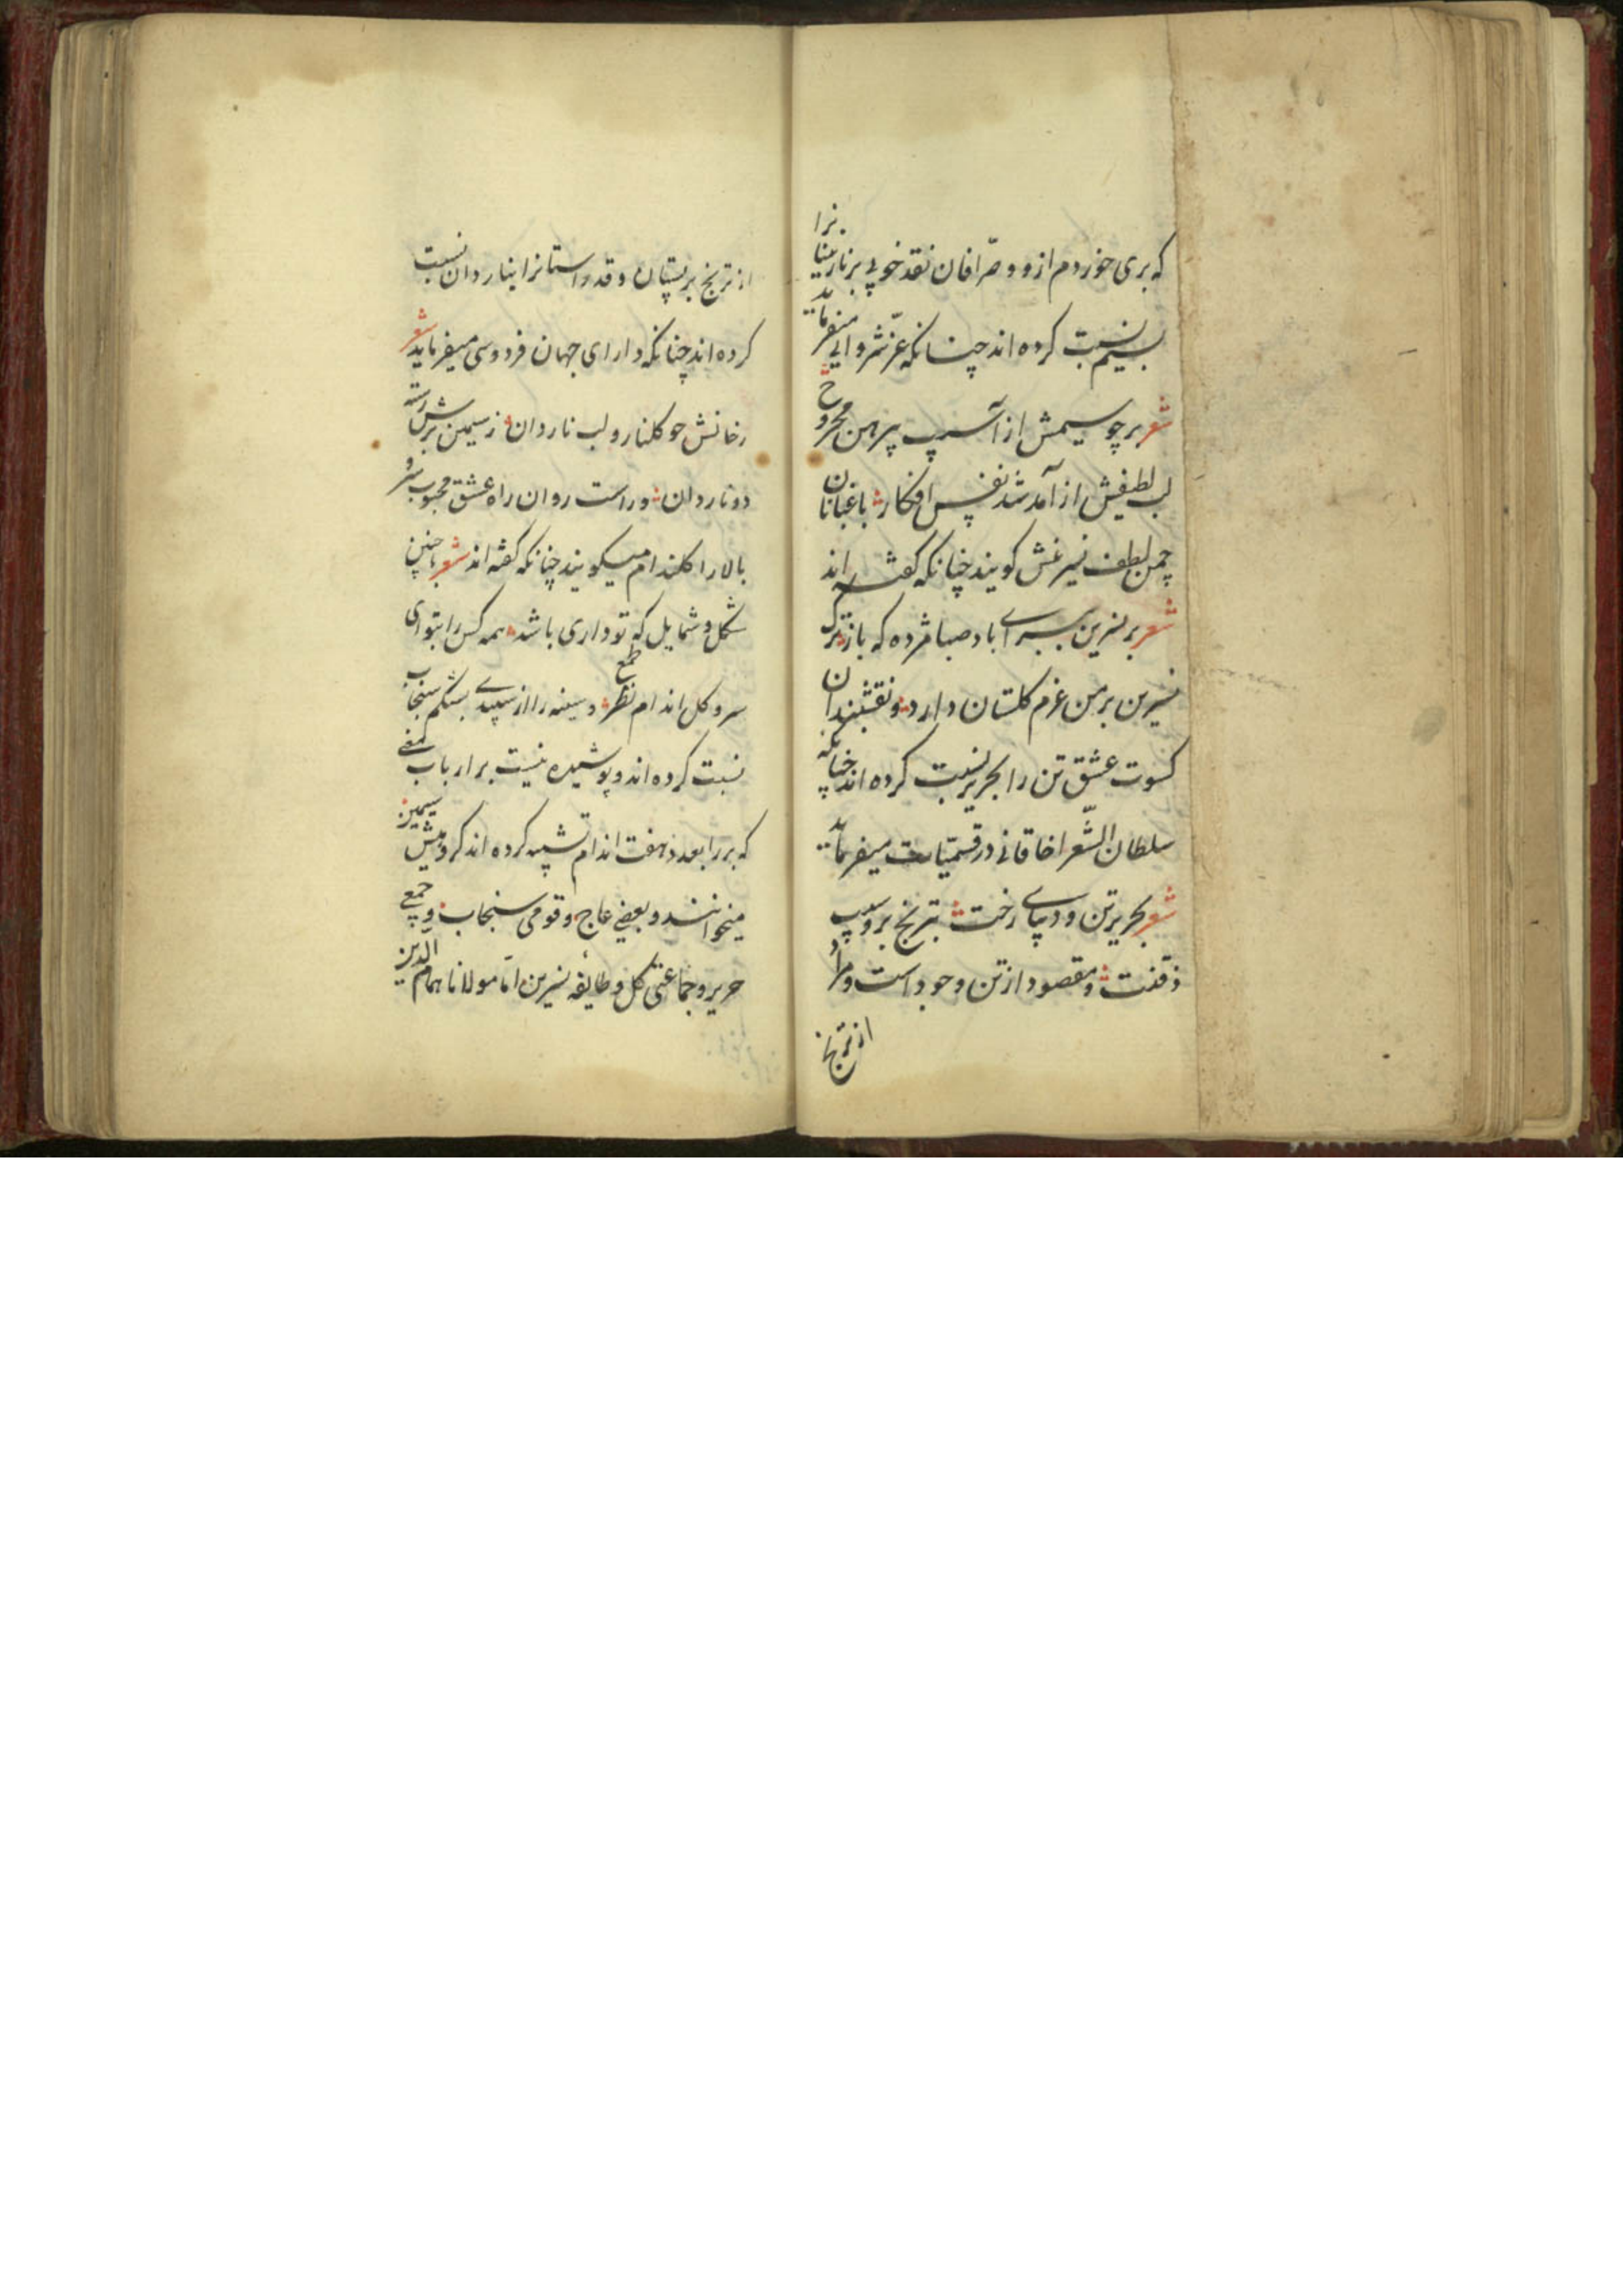 که بری خوردم ازو و صرّافان نقد خوبی بر نازنینانرا
بسیم نسبت کرده اند چنانکه عزّ شروانی میفرماید
شعر بر چو سیمش از آسیب پیرهن مجروح
لب لطیفش از آمد شد نفس افکار باغبانان
چمن لطف نسرینش کویند چنانکه کفته اند
شعر بر نسرین ببرای باد صبا مژده که باز ترک
نسرین بر من عزم کلستان دارد و نقشبندان
کسوت عشق تن را بحریر نسبت کرده اند چنانکه
سلطان الشّعرا خاقانی در قسمیّات میفرماید
شعر بحریر تن و دیبای رخت بترنج بر و سیب
ذقنت و مقصود از تن وجود است و مراد
از ترنج
از ترنج بر پستان و قدوا ستانرا بناردان نسبت
کرده اند چنانکه دارای جهان فردوسی میفرماید شعر
رخانش چو کلنار و لب ناردان ز سیمین برش رسته
دو ناردان و راست روان راه عشق محبوب سرو
بالا را کلندام میکویند چنانکه کفته اند شعر اینچنین
شکل و شمایل که تو داری باشد همه کس را بتو ای
سرو کل اندام طمع نظر و سینه را از سپیدی بشکم سنجاب
نسبت کرده اند و پوشیده نیست بر ارباب معنی
که بر را بعدد هفت اندام تشبیه کرده اند کروهیش سیمین
میخوانند و بعضی عاج و قومی سنجاب و جمعی
حریر و جماعتی کل و طایفه نسرین امّا مولانا همام الدّین